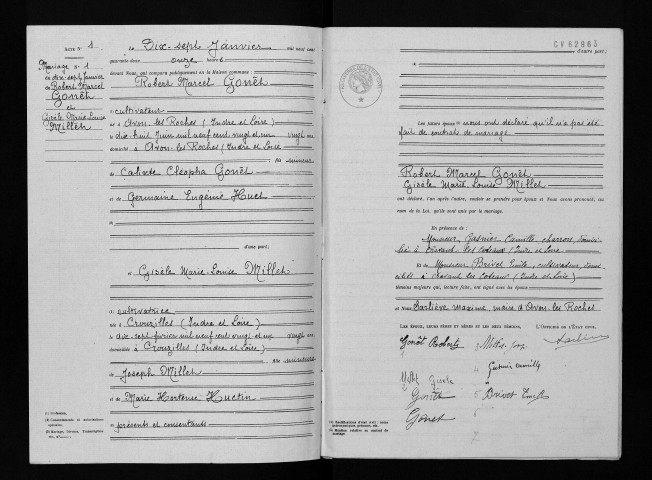 ACTE N° 1
Mariage n° 1
du dix-sept Janvier
de Robert Marcel
Gonêt
et
Gisèle Marie-Louise
Millet
Le Dix-sept Janvier mil neuf cent
quarante deux onze heures
devant Nous, ont comparu publiquement en la Maison commune :
Robert Marcel Gonêt
(1) cultivateur
né à Avon-les-Roches (Indre et Loire)
le dix-huit Juin mil neuf cent vingt et un vingt ans
domicilié à Avon-les-Roches (Indre et Loire)
fils mineur
de Calixte Cléopha Gonêt
et de Germaine Eugénie Huet
d'une part ;
et Gisèle Marie-Louise Millet
(1) cultivatrice
née à Crouzilles (Indre et Loire)
le dix-sept février mil neuf cent vingt et un vingt ans
domiciliée à Crouzilles (Indre et Loire)
fille mineure
de Joseph Millet
et de Marie Hortense Huctin
présents et consentants
(1) Profession.
CV 62963
d'autre part ;
Les futurs époux nous ont déclaré qu'il n'a pas été
fait de contrat de mariage
Robert Marcel Gonêt
Gisèle Marie-Louise Millet
ont déclaré, l'un après l'autre, vouloir se prendre pour époux et Nous avons prononcé, au
nom de la Loi, qu'ils sont unis par le mariage.
En présence de :
Monsieur Gasnier Camille charron, domici-
lié à Cravant les coteaux (Indre et Loire)
Et de Monsieur Brivot Emile, cultivateur, domi-
cilié à Cravant les Coteaux (Indre et Loire)
témoins majeurs qui, lecture faite, ont signé avec les époux
et Nous Maxime, maire d'Avon-les-Roches
LES ÉPOUX, LEURS PÈRES ET MÈRES ET LES DEUX TÉMOINS, L'OFFICIER DE L'ÉTAT CIVIL,
Gonêt Robert
Gonêt
Brivot Emile
Gonet